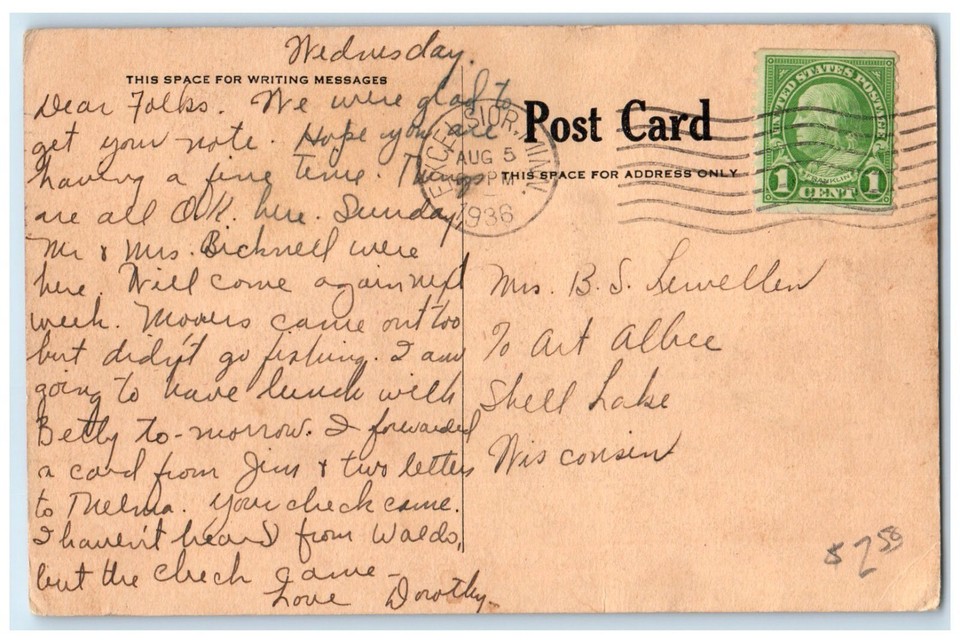 Wednesday.
THIS SPACE FOR WRITING MESSAGES
Dear Folks. We were glad to
get your note. Hope you are
having a fine time. Things
are all O.K. here. Sunday,
Mr & Mrs. Bicknell were
here. Will come again next
week. Movers came out too
but didn't go fishing. I am
going to have lunch with
Betty to-morrow. I forwarded
a card from Jim & two letters
to Thelma. Your check came.
I haven't heard from Waldo,
but the check came -
Love Dorothy.
EXCELSIOR, MINN.
AUG 5
PM
1936
Post Card
THIS SPACE FOR ADDRESS ONLY
UNITED STATES POSTAGE
FRANKLIN
1 CENT 1
Mrs. B. S. Lewellen
To Art Albee
Shell Lake
Wisconsin
$7.50